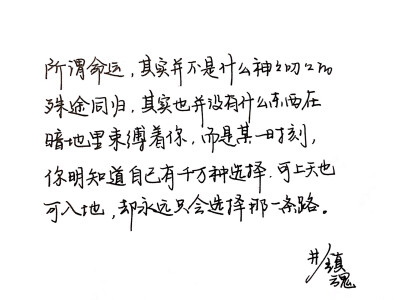 所谓命运，其实并不是什么神々叨々的
殊途同归，其实也并没有什么东西在
暗地里束缚着你，而是某一时刻，
你明知道自己有千万种选择.可上天也
可入地，却永远只会选择那一条路。
鎮
魂